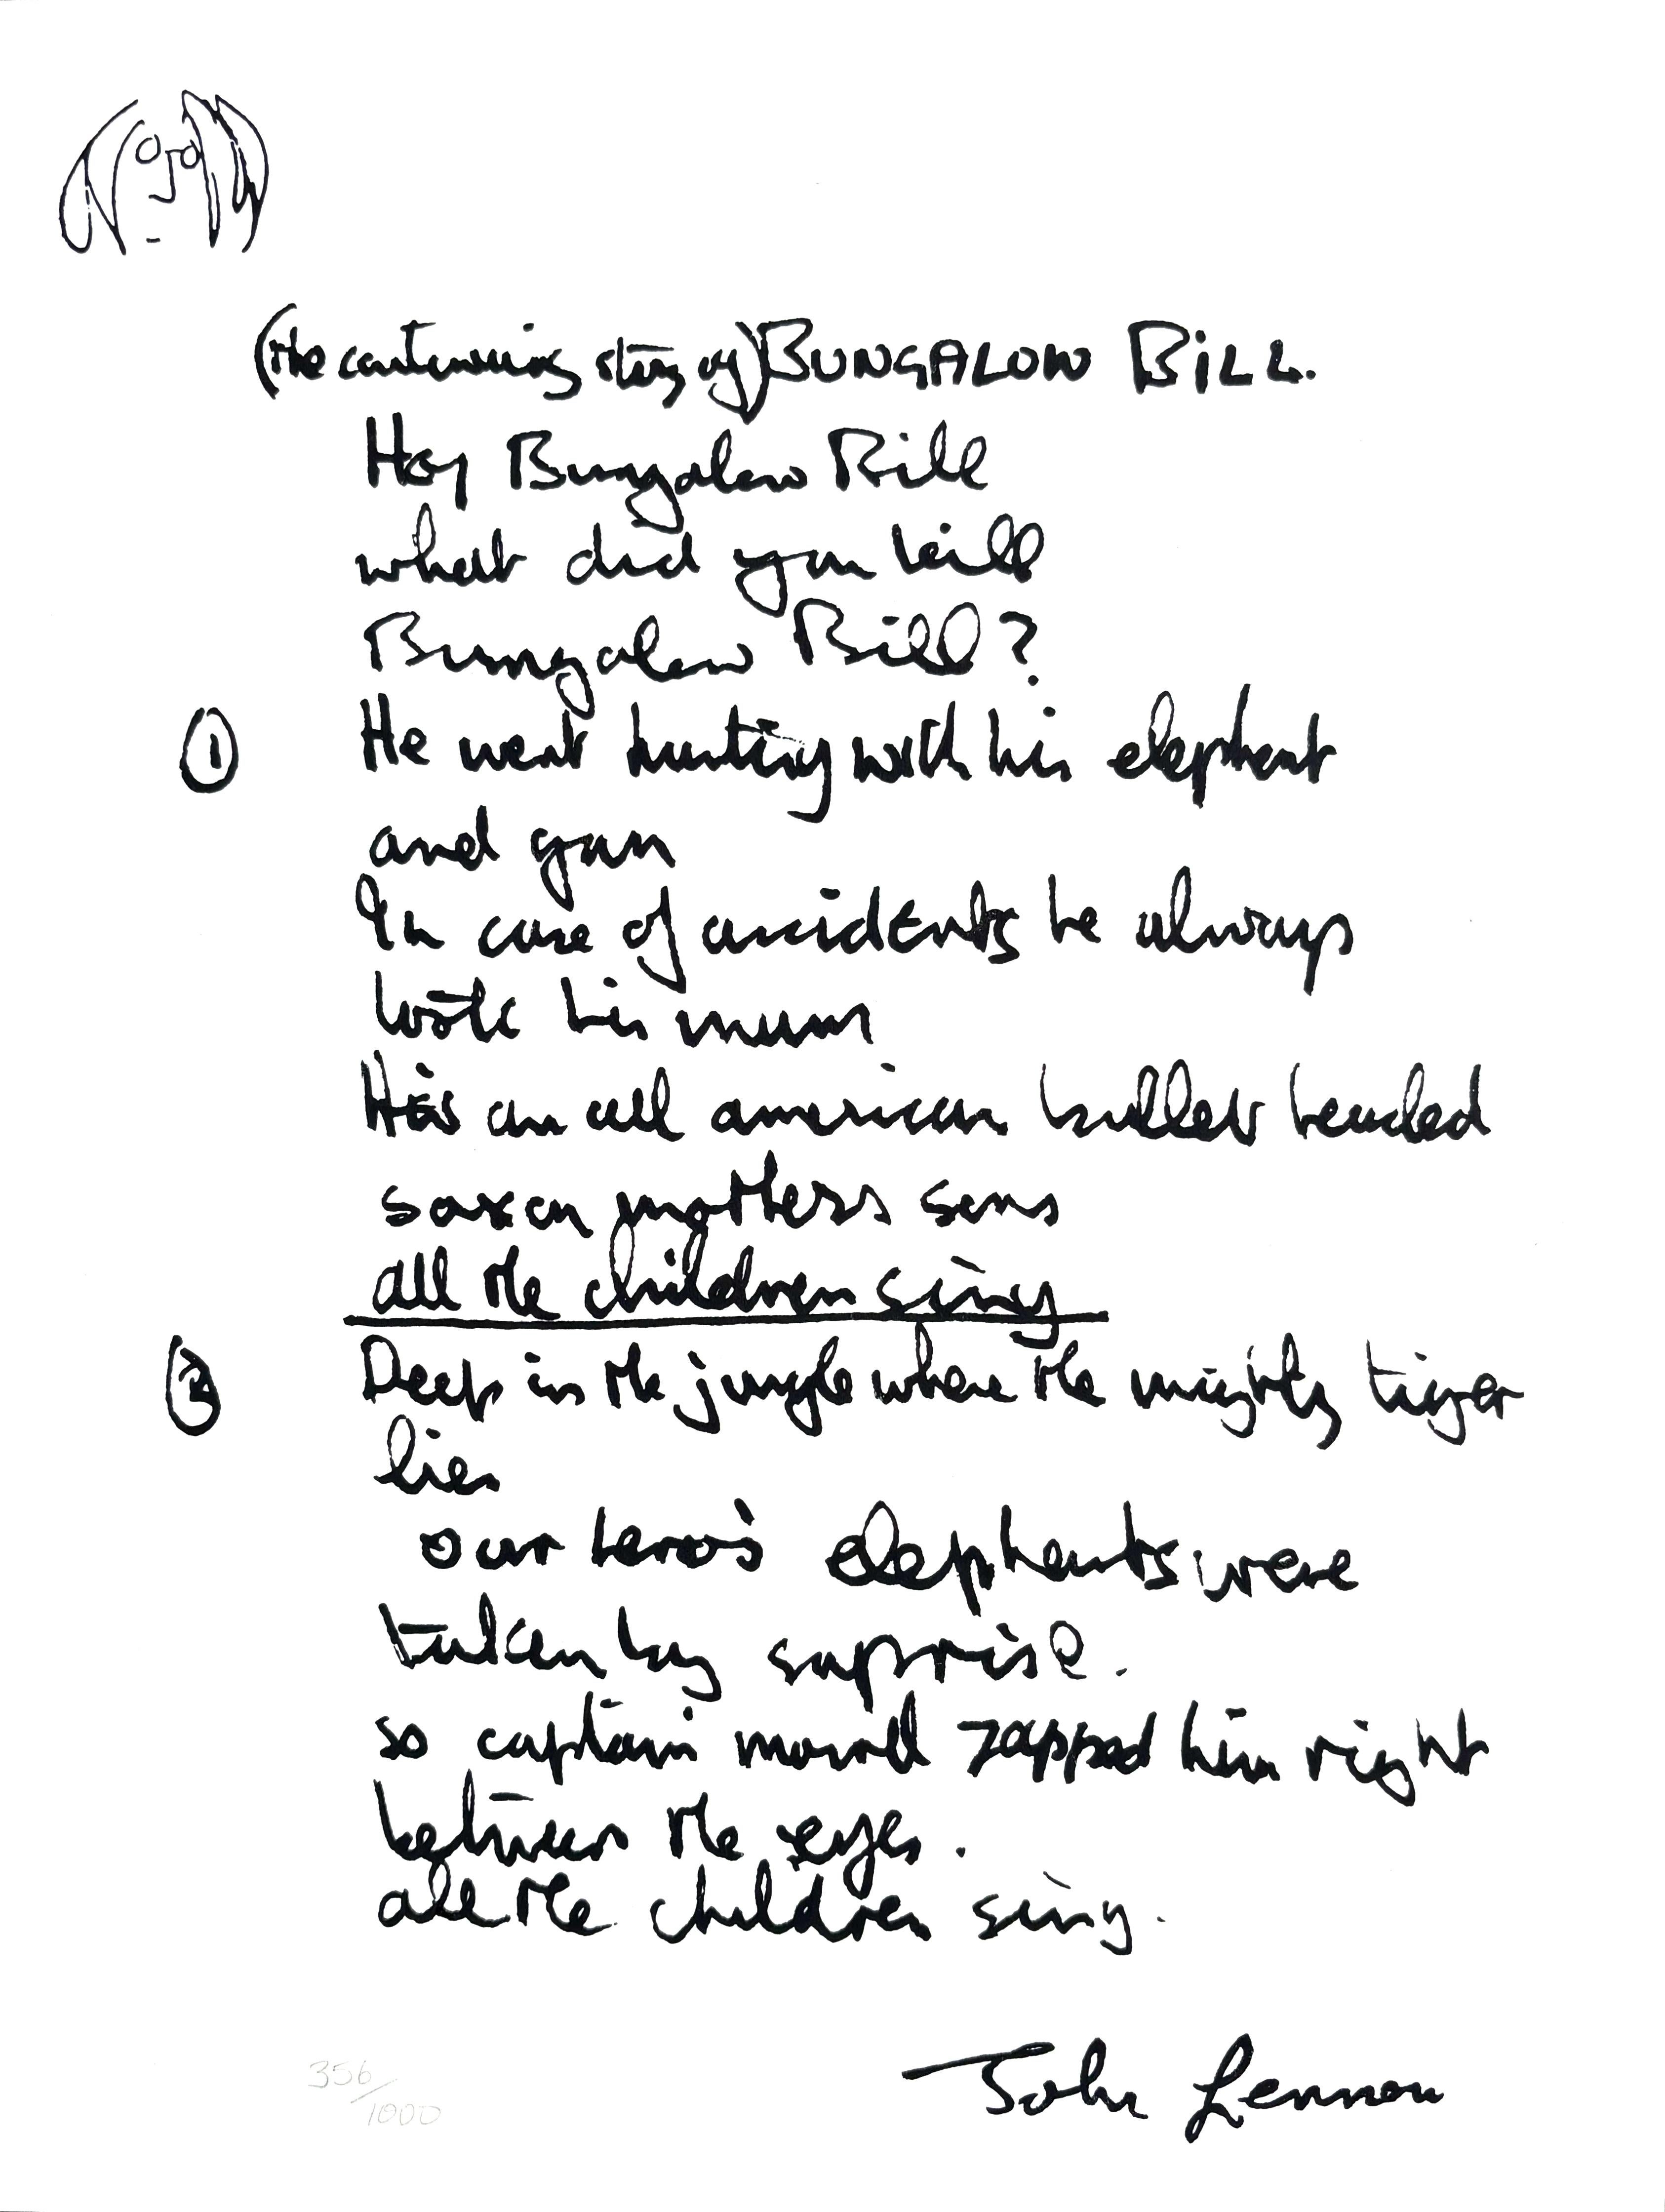 (the contenuing story of) BUNGALOW BILL.
Hey Bungalow Bill
what did you kill
Bungalow Bill?
① He went hunting with his elephant
and gun
In case of accidents he always
took his mum
He's an all american bullet headed
saxon mothers sons
all the children sing
② Deep in the jungle where the mighty tiger
lies
our hero's elephants were
taken by suprise.
so captain marvel zapped him right
between the eyes.
all the children sing.
John Lennon
356/1000